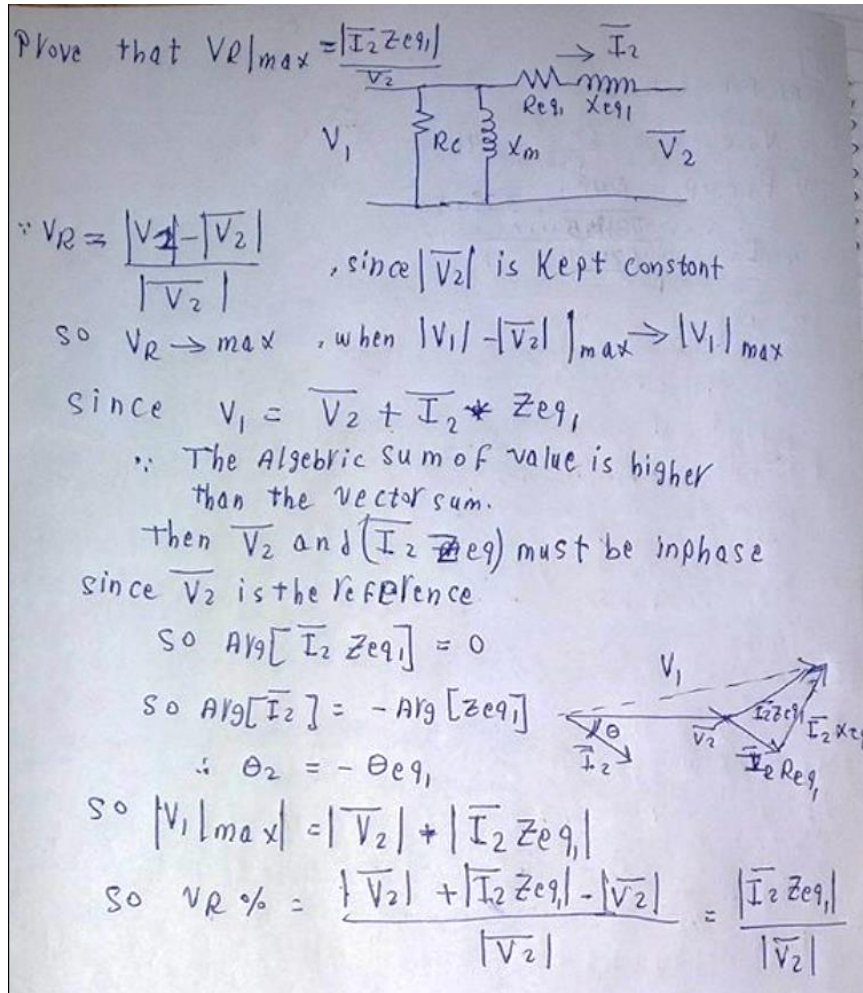 Prove that VR|max = |I̅2 Zeq1| / V̅2
→ I̅2
Req1 Xeq1
V1 Rc Xm V̅2
∵ VR = |V1| - |V̅2| / |V̅2| , since |V̅2| is Kept constont
so VR → max , when |V1| - |V̅2| |max → |V1| max
since V1 = V̅2 + I̅2 * Zeq1
∵ The Algebric sum of value is higher
than the vector sum.
then V̅2 and (I̅2 Zeq) must be inphase
since V̅2 is the reference
so Arg[I̅2 Zeq1] = 0
so Arg[I̅2] = - Arg [Zeq1]
∴ θ2 = - θeq1
V1
θ I̅2 V̅2 I̅2Zeq1 I̅2 Xeq
I̅2 Req1
so |V1|max| = |V̅2| + |I̅2 Zeq1|
so VR % = |V̅2| + |I̅2 Zeq1| - |V̅2| / |V̅2| = |I̅2 Zeq1| / |V̅2|